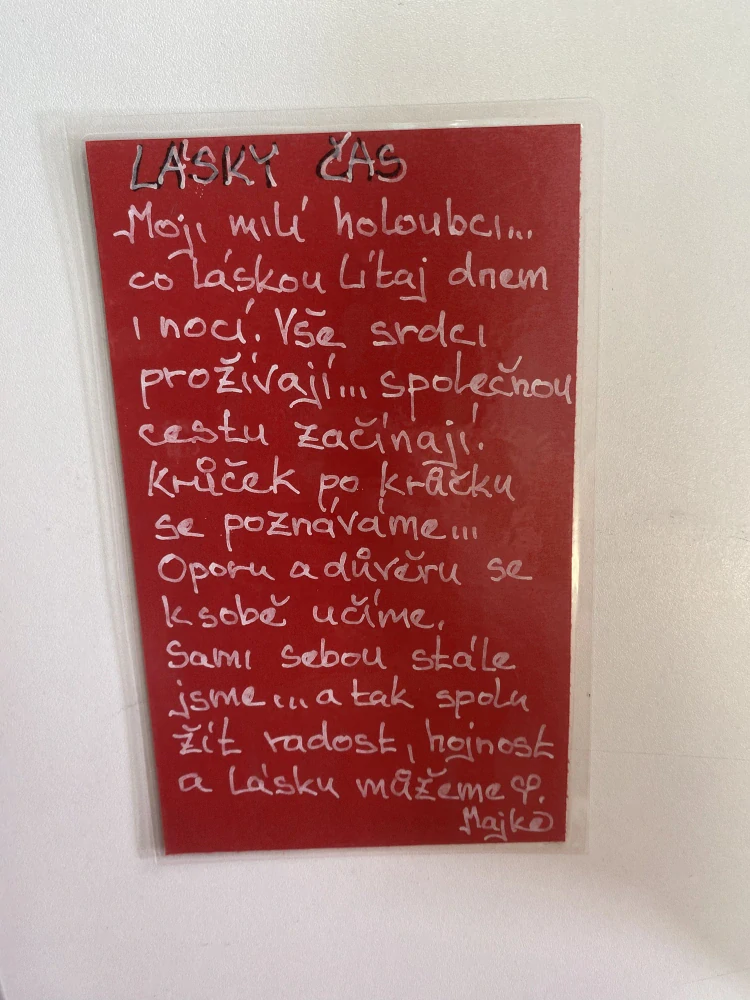 LÁSKY ČAS
Moji milí holoubci...
co láskou lítaj dnem
i nocí. Vše srdci
prožívají... společnou
cestu začínají.
Krůček po krůčku
se poznáváme...
Oporu a důvěru se
k sobě učíme.
Sami sebou stále
jsme... a tak spolu
žít radost, hojnost
a lásku můžeme.